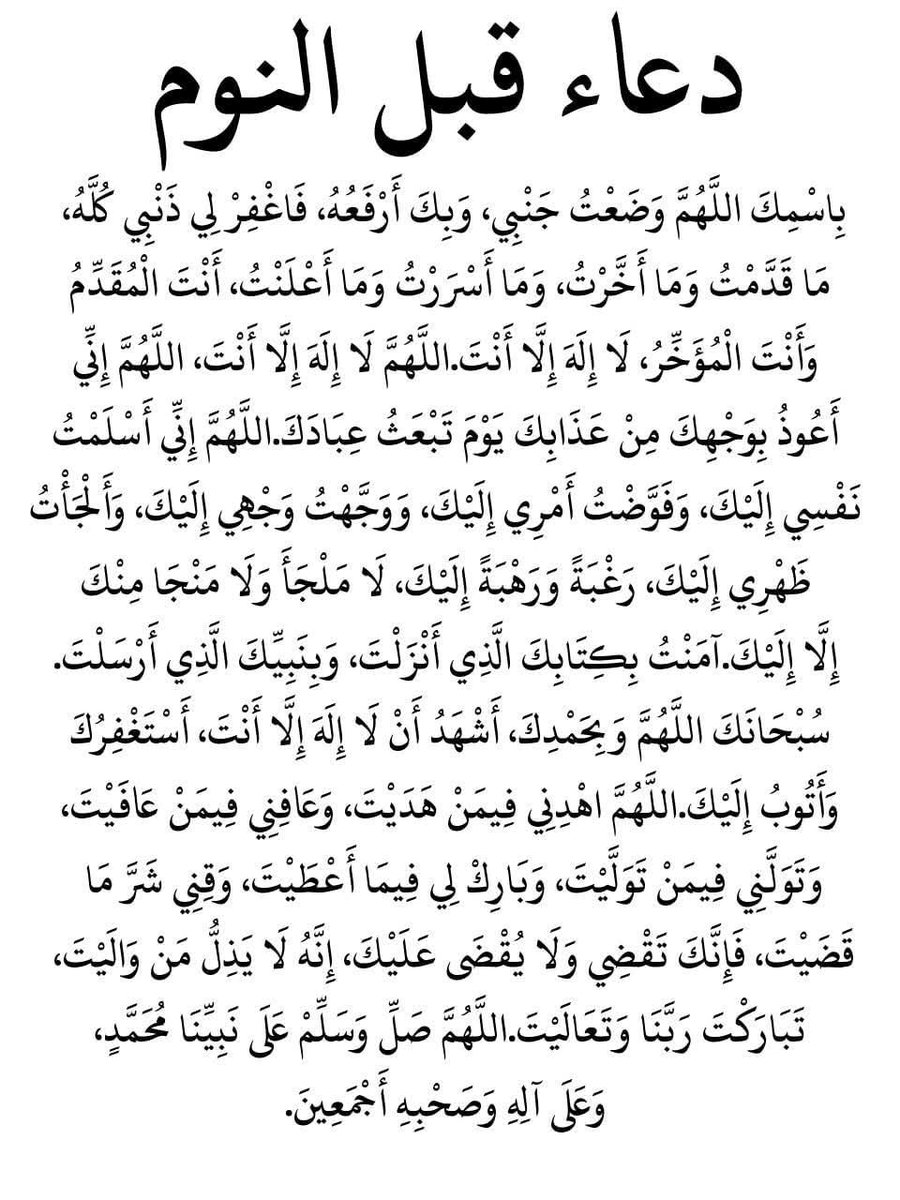 دعاء قبل النوم
بِاسْمِكَ اللَّهُمَّ وَضَعْتُ جَنْبِي، وَبِكَ أَرْفَعُهُ، فَاغْفِرْ لِي ذَنْبِي كُلَّهُ،
مَا قَدَّمْتُ وَمَا أَخَّرْتُ، وَمَا أَسْرَرْتُ وَمَا أَعْلَنْتُ، أَنْتَ الْمُقَدِّمُ
وَأَنْتَ الْمُؤَخِّرُ، لَا إِلَهَ إِلَّا أَنْتَ.اللَّهُمَّ لَا إِلَهَ إِلَّا أَنْتَ، اللَّهُمَّ إِنِّي
أَعُوذُ بِوَجْهِكَ مِنْ عَذَابِكَ يَوْمَ تَبْعَثُ عِبَادَكَ.اللَّهُمَّ إِنِّي أَسْلَمْتُ
نَفْسِي إِلَيْكَ، وَفَوَّضْتُ أَمْرِي إِلَيْكَ، وَوَجَّهْتُ وَجْهِي إِلَيْكَ، وَأَلْجَأْتُ
ظَهْرِي إِلَيْكَ، رَغْبَةً وَرَهْبَةً إِلَيْكَ، لَا مَلْجَأَ وَلَا مَنْجَا مِنْكَ
إِلَّا إِلَيْكَ.آمَنْتُ بِكِتَابِكَ الَّذِي أَنْزَلْتَ، وَبِنَبِيِّكَ الَّذِي أَرْسَلْتَ.
سُبْحَانَكَ اللَّهُمَّ وَبِحَمْدِكَ، أَشْهَدُ أَنْ لَا إِلَهَ إِلَّا أَنْتَ، أَسْتَغْفِرُكَ
وَأَتُوبُ إِلَيْكَ.اللَّهُمَّ اهْدِنِي فِيمَنْ هَدَيْتَ، وَعَافِنِي فِيمَنْ عَافَيْتَ،
وَتَوَلَّنِي فِيمَنْ تَوَلَّيْتَ، وَبَارِكْ لِي فِيمَا أَعْطَيْتَ، وَقِنِي شَرَّ مَا
قَضَيْتَ، فَإِنَّكَ تَقْضِي وَلَا يُقْضَى عَلَيْكَ، إِنَّهُ لَا يَذِلُّ مَنْ وَالَيْتَ،
تَبَارَكْتَ رَبَّنَا وَتَعَالَيْتَ.اللَّهُمَّ صَلِّ وَسَلِّمْ عَلَى نَبِيِّنَا مُحَمَّدٍ،
وَعَلَى آلِهِ وَصَحْبِهِ أَجْمَعِينَ.